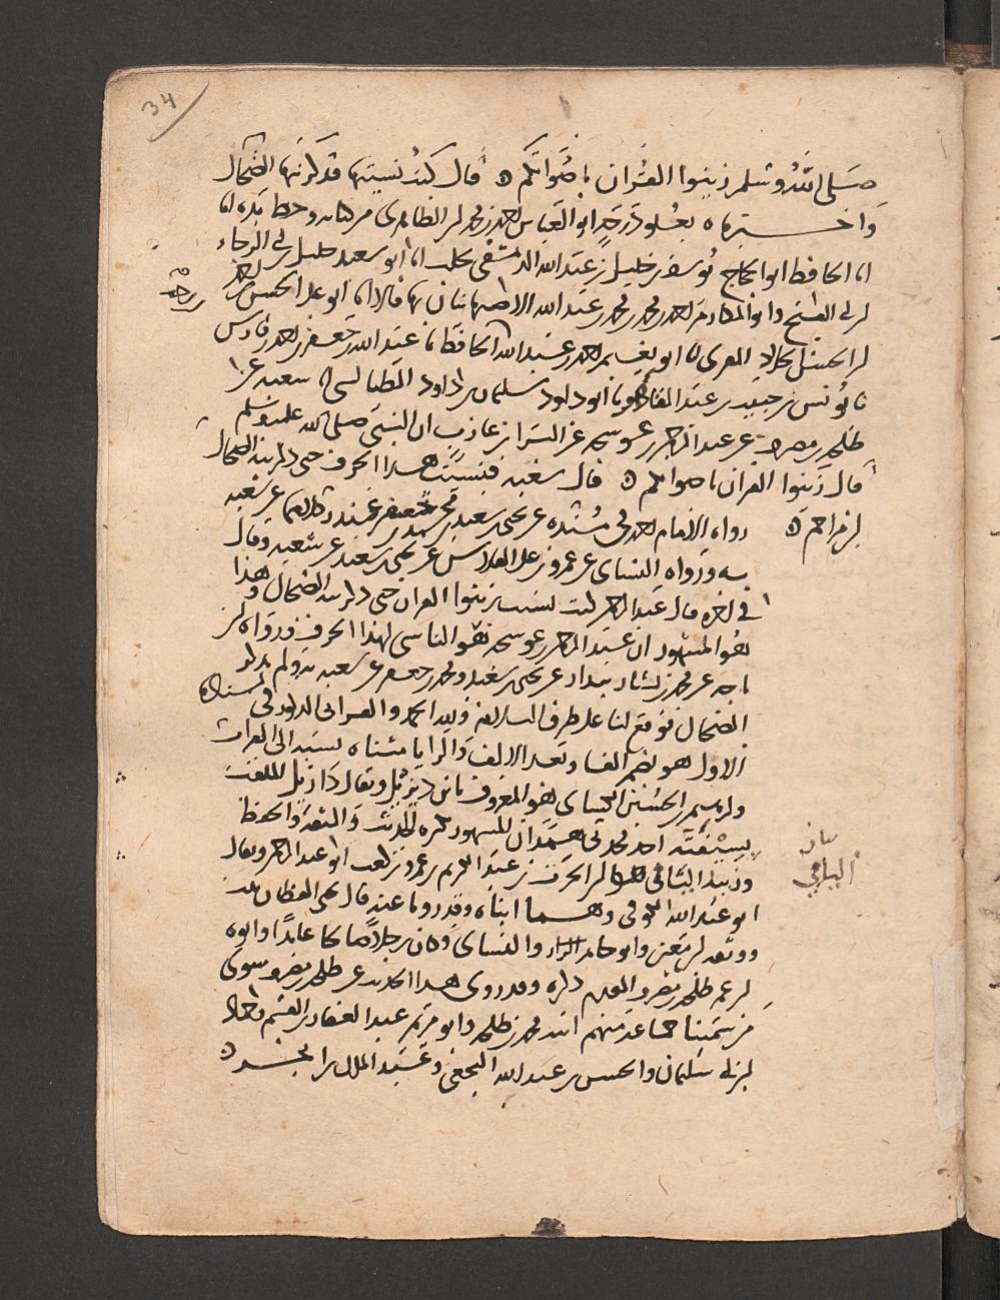 34
صلى الله وسلم زينوا القران باصواتكم ه قال كنت نسيتها فذكرنيها الضحاك
واخبرناه بعلو درجة ابو العباس احمد بن محمد بن الظاهري
انا الحافظ ابو الحجاج يوسف بن خليل بن عبد الله الدمشقي بحلب انا ابو سعيد خليل بن ابي الرجاء
بن ابي الفتح وابو المكارم احمد بن محمد بن محمد بن عبد الله الاصبهانيان بها قالا انا ابو علي الحسن بن احمد
بن الحسن الحداد المقرئ انا ابو نعيم احمد بن عبد الله الحافظ نا عبد الله بن جعفر بن احمد بن فارس
نا يونس بن حبيب بن عبد القاهر نا ابو داود سليمان بن داود الطيالسي نا شعبة عن
طلحة بن مصرف عن عبد الرحمن بن عوسجة عن البراء بن عازب ان النبي صلى الله عليه وسلم
قال زينوا القران باصواتكم ه قال شعبة فنسيت هذا الحرف حتى ذكرنيه الضحاك
بن مزاحم ه رواه الامام احمد في مسنده عن يحيى بن سعيد ومحمد بن جعفر غندر كلاهما عن شعبة
به ورواه النساي عن عمرو بن علي الفلاس عن يحيى بن سعيد عن شعبة وقال
في اخره قال عبد الرحمن كنت نسيت زينوا القران حتى ذكرنيه الضحاك وهذا
هو المشهور ان عبد الرحمن بن عوسجة هو الناسي لهذا الحرف ورواه بن
ماجه عن محمد بن بشار بندار عن يحيى بن سعيد ومحمد بن جعفر عن شعبة به ولم يذكر
الضحاك فوقع لنا على طريق السلامة ولله الحمد والفراني المذكور في
الاول هو بضم الفا وبعد الالف
يعرف بابن ديزيل ويقال دازيل الملقب
بسيفنة احد محدثي همدان المشهور بكثرة الحديث والثقة والحفظ
وزبيد اليامي هو بن الحرث بن عبد الكريم بن عمرو بن كعب ابو عبد الرحمن ويقال
ابو عبد الله الكوفي وقد رويا عنه قال يحيى القطان ثبت
ووثقه بن معين وابو حاتم الرازي والنساي وكان رجلا صالحا عابدا وابوه
بن عم طلحة بن مصرف المقدم ذكره وقد روى هذا الحديث عن طلحة بن مصرف سوى
من سمينا جماعة منهم ابنه محمد بن طلحة وابو مريم عبد الغفار بن القسم وحماد
بن ابي سليمان والحسن بن عبيد الله النخعي وعبد الملك بن ابجر ه
بيان
اليامي